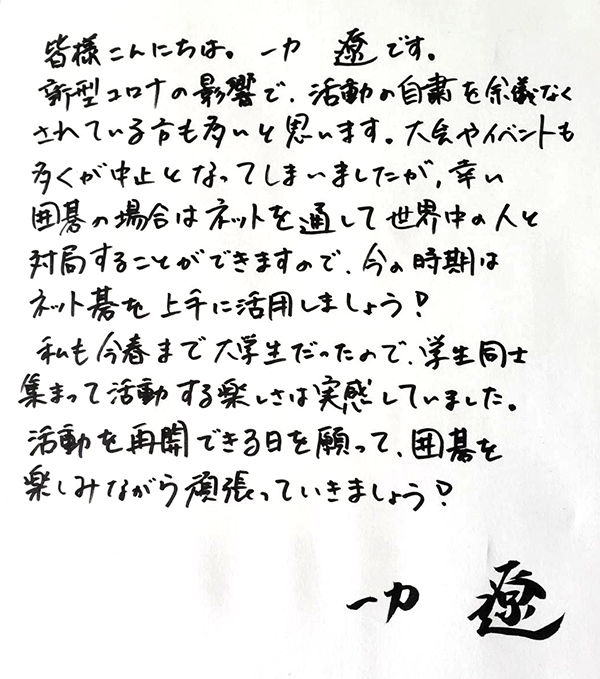 皆様こんにちは。一力 遼です。
新型コロナの影響で、活動の自粛を余儀なく
されている方も多いと思います。大会やイベントも
多くが中止となってしまいましたが、幸い
囲碁の場合はネットを通して世界中の人と
対局することができますので、今の時期は
ネット碁を上手に活用しましょう!
私も今春まで大学生だったので、学生同士
集まって活動する楽しさは実感していました。
活動を再開できる日を願って、囲碁を
楽しみながら頑張っていきましょう!
一力 遼